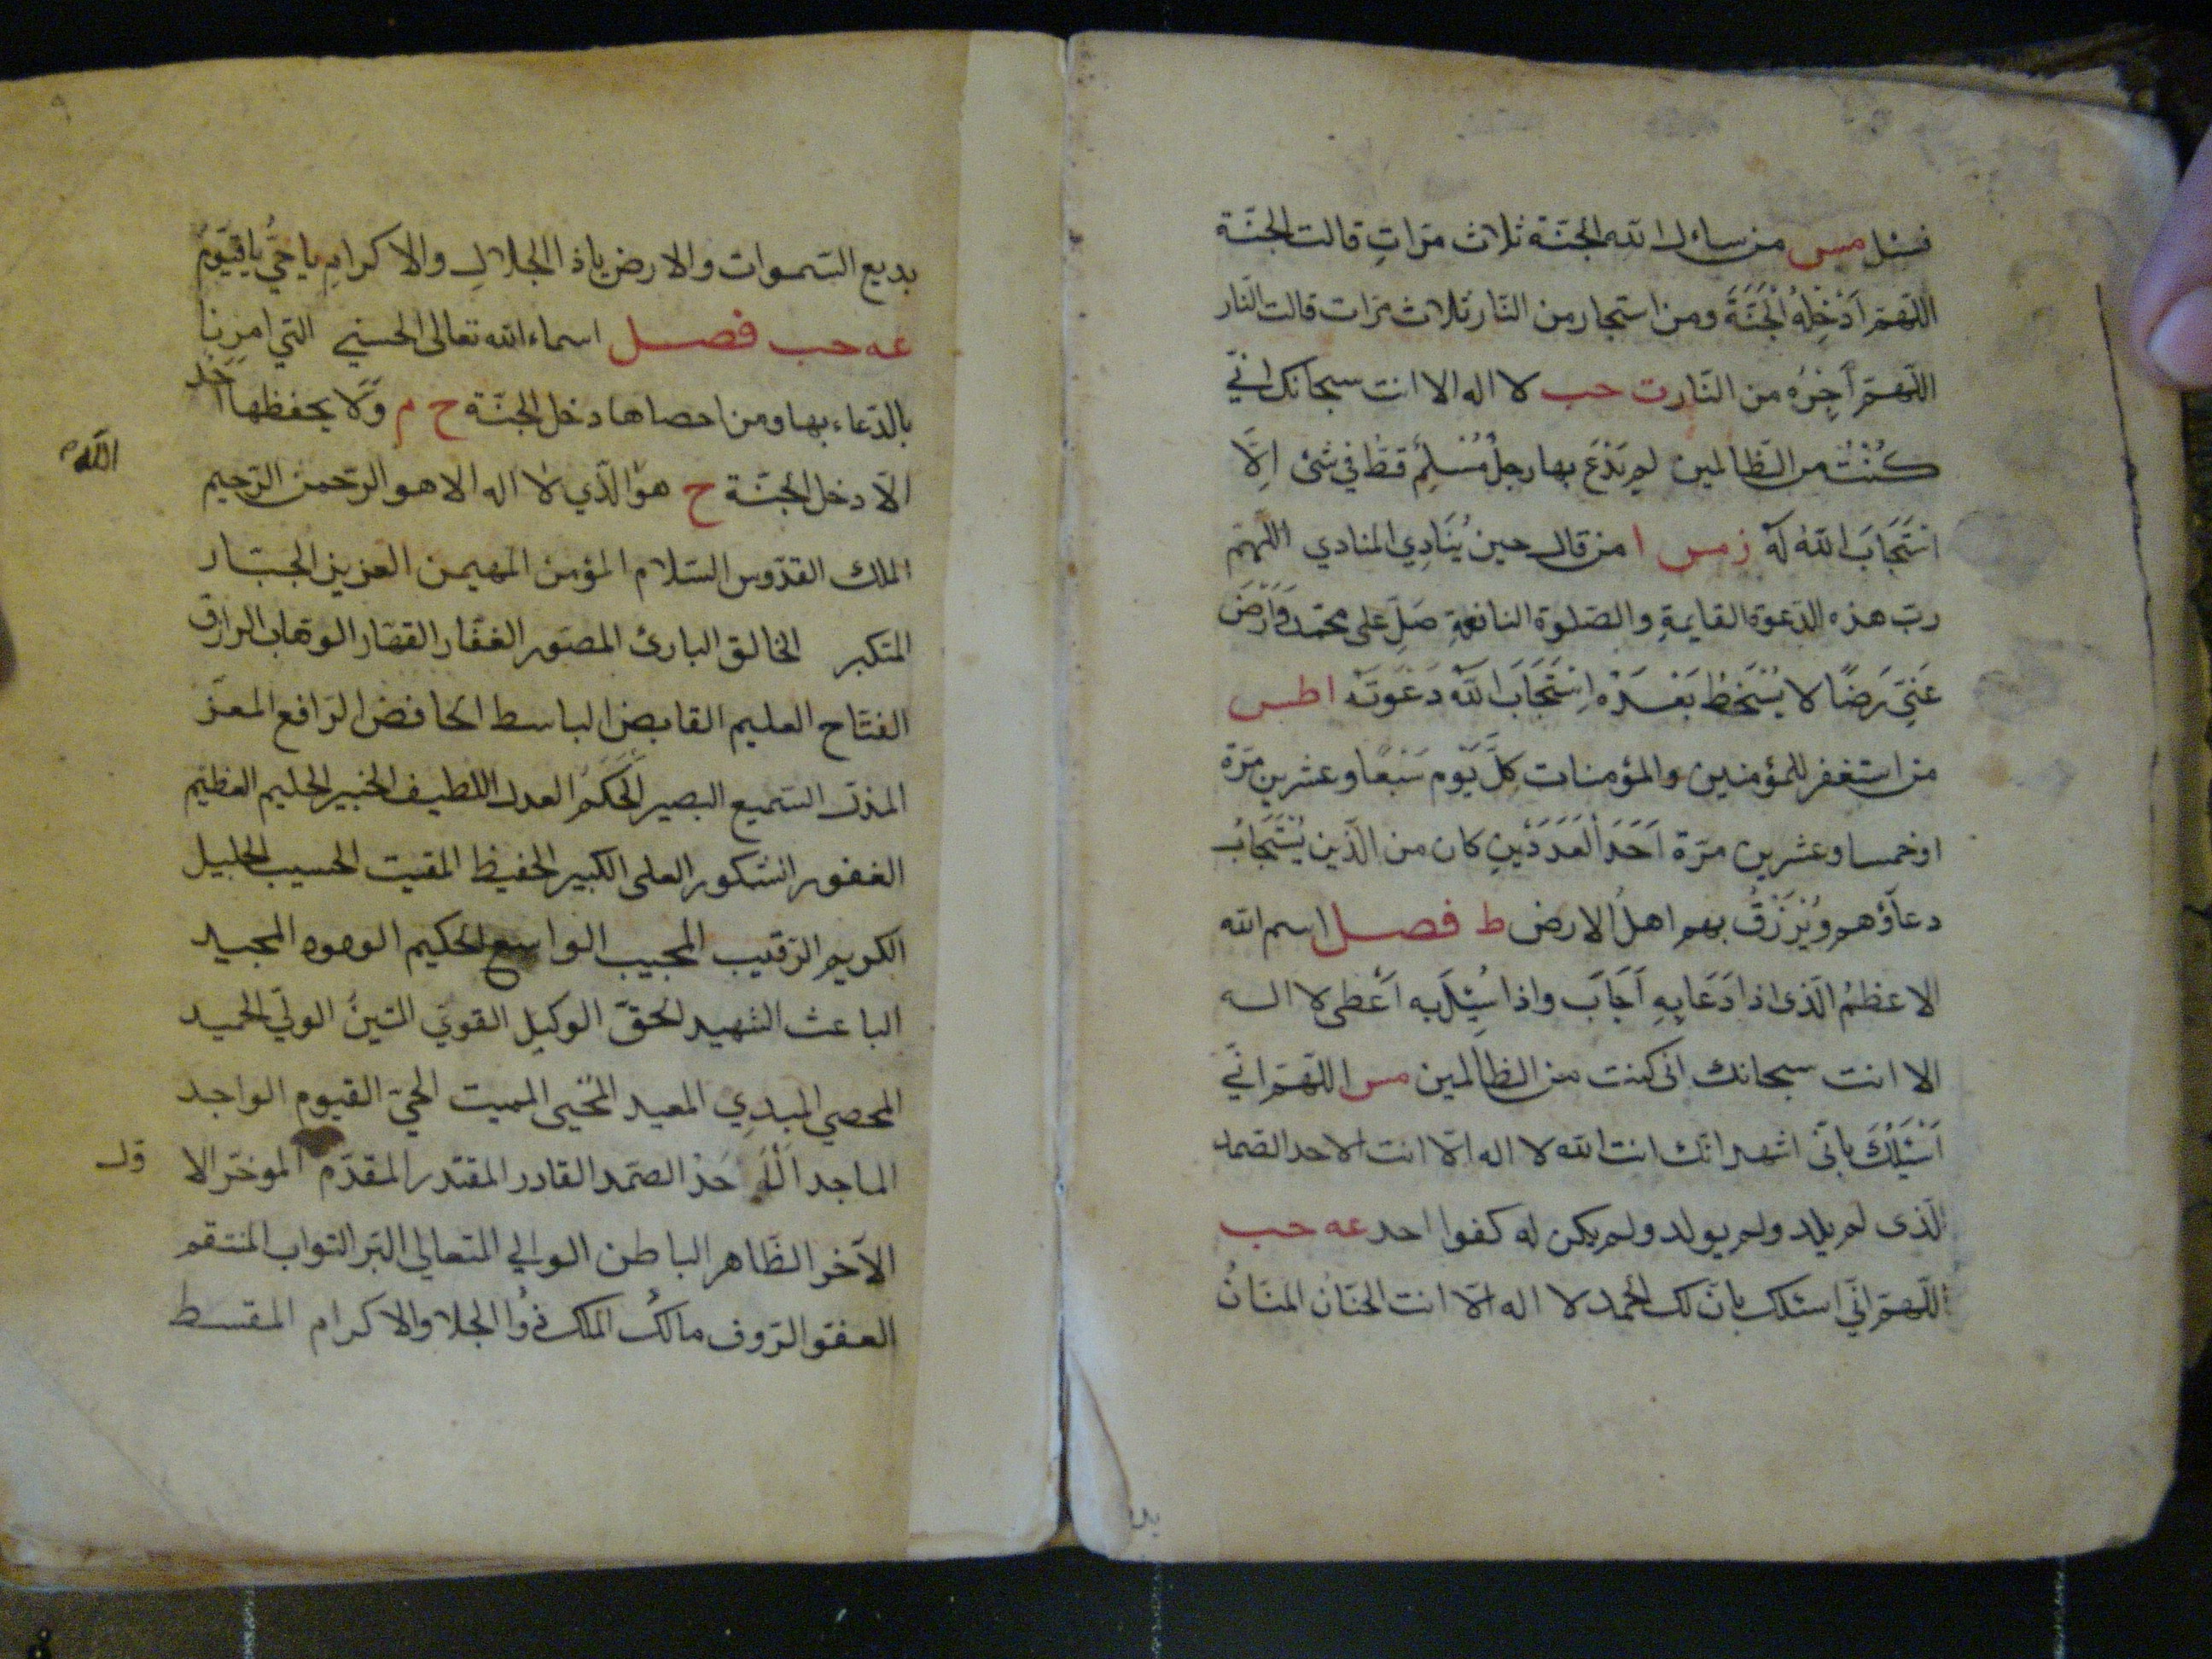 فسئل مس من سال الله الجنّة ثلاث مرّاتٍ قالت الجنّة
اللّهمّ اَدْخِلْهُ الْجَنَّةَ ومن استجار من النّار ثلاث مرّات قالت النّار
اللّهمّ اَجِرْهُ من النّار ت حب لا اله الا انت سبحانك انّي
كُنْتُ من الظّالمين لم يَدْعُ بها رجلٌ مُسْلِمٌ قطّ في شئ اِلَّا
اسْتَجَابَ اللهُ لَهُ ز مس ا من قال حين يُنَادِي المنادي اللّهمّ
ربّ هذه الدّعوة القايمةِ والصّلوة النافعةِ صَلِّ على محمّد وَارْضَ
عَنِّي رِضًا لا يُسْخَطُ بَعْدَهُ اِسْتَجَابَ اللّٰهُ دَعْوَتَهُ ا طس
من استغفر للمؤمنين والمؤمنات كلَّ يَوْمٍ سَبْعًا وعشرين مرّة
او خمسا وعشرين مرّة اَحَدَ الْعَدَدَيْنِ كان من الّذين يُسْتَجَابُ
دعاؤهم ويُرْزَقُ بهم اهلُ الارض ط فصل اسم الله
الاعظمُ الّذى اذا دَعَا بِهِ اَجَابَ واذا سُئِلَ به اَعْطى لا اله
الا انت سبحانك انى كنت من الظالمين مس اللّهمّ انّي
اَسْئَلُكَ بانّى اشهد انّك انت الله لا اله الّا انت الاحد الصّمد
الّذى لم يلد ولم يولد ولم يكن له كفوا احد عه حب
اللّهمّ انّي اسئلك بانّ لك الحمد لا اله الّا انت الحنّان المنّانُ
بد
بديع السّموات والارض ياذا الجلالِ والاكرامِ يا حيُّ يا قيّوم
عه حب فصل اسماء الله تعالى الحسني التي امرنا
بالدّعاء بها ومن احصاها دخل الجنّة خ م وَلَا يحفظها اَحَدٌ
الّا دخل الجنّة خ هو الّذي لا اله الا هو الرّحمن الرّحيم
الله
الملك القدّوس السّلام المؤمن المهيمن العزيز الجبّار
المتكبر الخالق البارئ المصوّر الغفّار القهّار الوهّاب الرزاق
الفتّاح العليم القابض الباسط الخافض الرّافع المعزّ
المذلّ السّميع البصير الحَكَمُ العدل اللطيف الخبير الحليم العظيم
الغفور الشكور العلى الكبير الحفيظ المقيت الحسيب الجليل
الكريم الرّقيب المجيب الواسع الحكيم الودود المجيد
الباعث الشهيد الحقّ الوكيل القويّ المتينُ الوليّ الحميد
المحصي المبدِي المعيد المُحْيى المميت الحيّ القيوم الواجد
الماجد الْاَحَدُ الصّمد القادر المقتدر المقدّم الموخّر الا
ول
الآخر الظّاهر الباطن الوالي المتعالي البرّ التواب المنتقم
العفوّ الرّوف مالكُ الملك ذُوا الجلا والاكرام المقسط